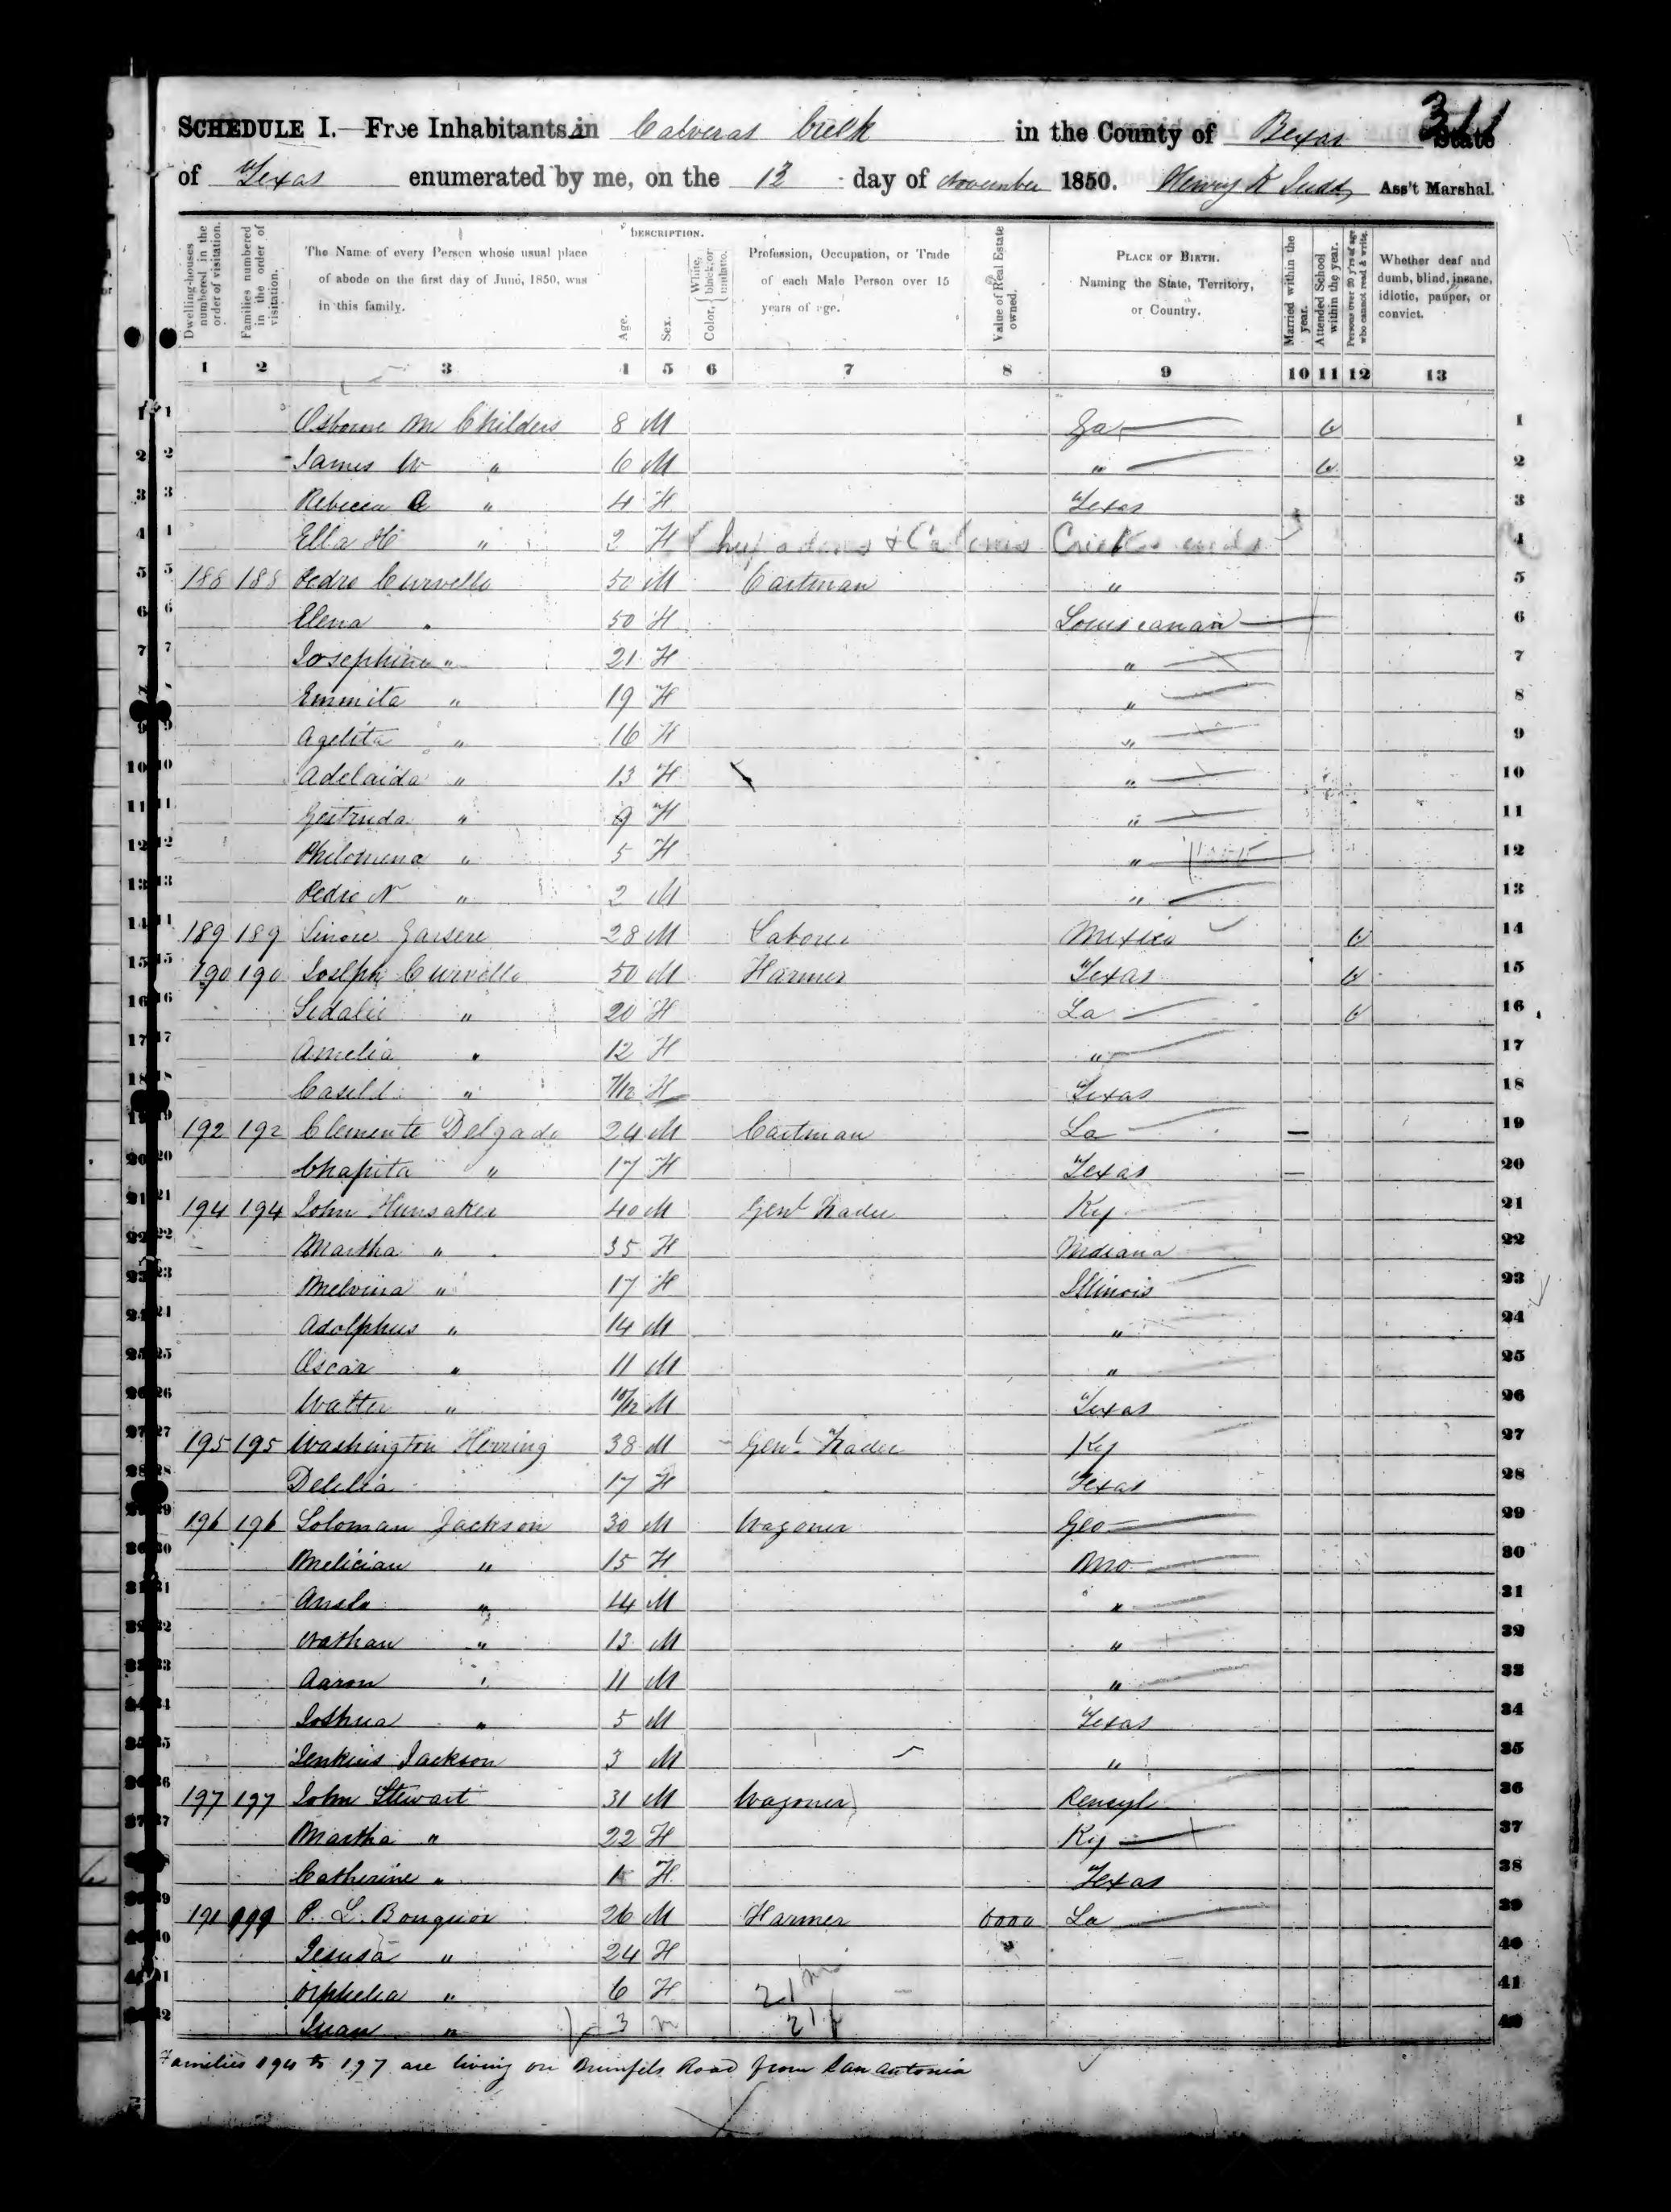 311
SCHEDULE I.—Free Inhabitants in Calveras Creek in the County of Bexar State
of Texas enumerated by me, on the 13 day of November 1850. Henry K Judd, Ass't Marshal.
Dwelling-houses numbered in the order of visitation.
Families numbered in the order of visitation.
The Name of every Person whose usual place of abode on the first day of June, 1850, was in this family.
DESCRIPTION.
Age.
Sex.
Color, { White, black, or mulatto.
Profession, Occupation, or Trade of each Male Person over 15 years of age.
Value of Real Estate owned.
PLACE OF BIRTH. Naming the State, Territory, or Country.
Married within the year.
Attended School within the year.
Persons over 20 y'rs of age who cannot read & write.
Whether deaf and dumb, blind, insane, idiotic, pauper, or convict.
1 2 3 4 5 6 7 8 9 10 11 12 13
1 Osborne M Childers 8 M Ga 1
2 James W " 6 M " 2
3 Rebecca A " 4 F Texas 3
4 Ella H " 2 F Creek ends 4
5 188 188 Pedro Curvello 50 M Cartman " 5
6 Elena " 50 F Louiseanan 6
7 Josephine " 21 F " 7
8 Emmita " 19 F " 8
9 Agelita " 16 F " 9
10 Adelaida " 13 F " 10
11 Gertruda " 9 F " 11
12 Philomena " 5 F " 12
13 Pedro N " 2 M " 13
14 189 189 28 M Laborer Mexico 14
15 190 190 Joseph Curvello 50 M Farmer Texas 15
16 Sedalie " 20 F La 16
17 Amelia " 12 F " 17
18 " 7/12 F Texas 18
19 192 192 Clemente Delgado 24 M Cartman La 19
20 Chapita " 17 F Texas 20
21 194 194 John Hunsaker 40 M Genl Trader Ky 21
22 Martha " 35 F Indiana 22
23 Melvina " 17 F Illinois 23
24 Adolphus " 14 M " 24
25 Oscar " 11 M " 25
26 Walter " 10/12 M Texas 26
27 195 195 Washington Herring 38 M Genl Trader Ky 27
28 Delelia 17 F Texas 28
29 196 196 Soloman Jackson 30 M Wagoner Geo 29
30 Melician " 15 F Mo 30
31 " 14 M " 31
32 Nathan " 13 M " 32
33 Aaron " 11 M " 33
34 Joshua " 5 M Texas 34
35 Jenkins Jackson 3 M " 35
36 197 197 John Stewart 31 M Wagoner Pensyl 36
37 Martha " 22 F Ky 37
38 Catherine " 1 F Texas 38
39 P. L. Bouquor 26 M Farmer 6000 La 39
40 Jesusa " 24 F 40
41 Orphelia " 6 F 21 m 41
42 Juan " 3 m 21 f 42
Families 194 to 197 are living on Brunfels Road from San Antonio